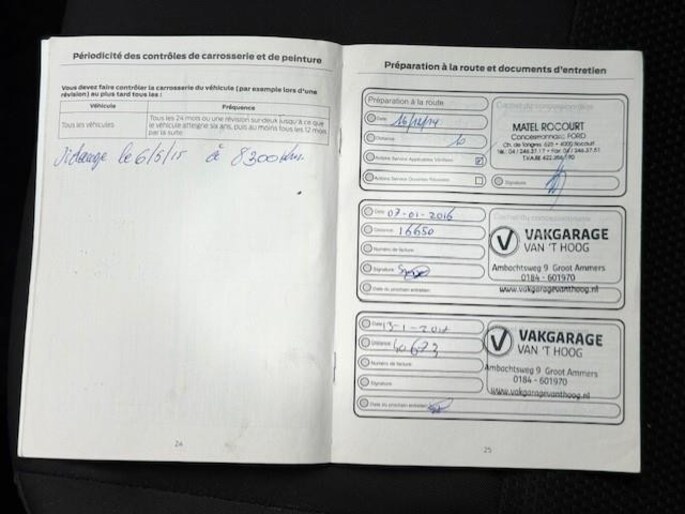 Périodicité des contrôles de carrosserie et de peinture
Vous devez faire contrôler la carrosserie du véhicule (par exemple lors d'une
révision) au plus tard tous les :
Véhicule
Fréquence
Tous les véhicules
Tous les 24 mois ou une révision sur deux jusqu'à ce que
le véhicule atteigne six ans, puis au moins tous les 12 mois
par la suite
Vidange le 6/5/15 à 8300 km.
24
Préparation à la route et documents d'entretien
Préparation à la route
Date 16/12/14
Distance 10
Actions Service Applicables Vérifiées
Signature
MATEL ROCOURT
Concessionnaire FORD
Ch. de Tongres, 4000 Rocourt
Date 07-01-2016
Distance 16650
Numéro de facture
Signature
Date du prochain entretien
VAKGARAGE
VAN 'T HOOG
Ambachtsweg 9 Groot Ammers
0184 - 601970
www.vakgaragevanthoog.nl
Date 13-1-
Distance 40673
Numéro de facture
Signature
Date du prochain entretien
VAKGARAGE
VAN 'T HOOG
Ambachtsweg 9 Groot Ammers
0184 - 601970
www.vakgaragevanthoog.nl
25